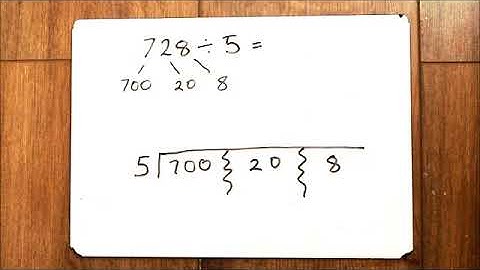 728÷5=
700 20 8
5 700 20 8